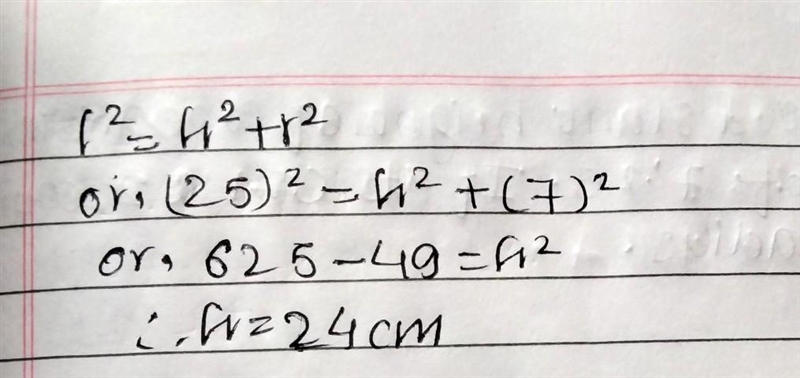 l² = h² + r²
or, (25)² = h² + (7)²
or, 625 - 49 = h²
∴ h = 24 cm